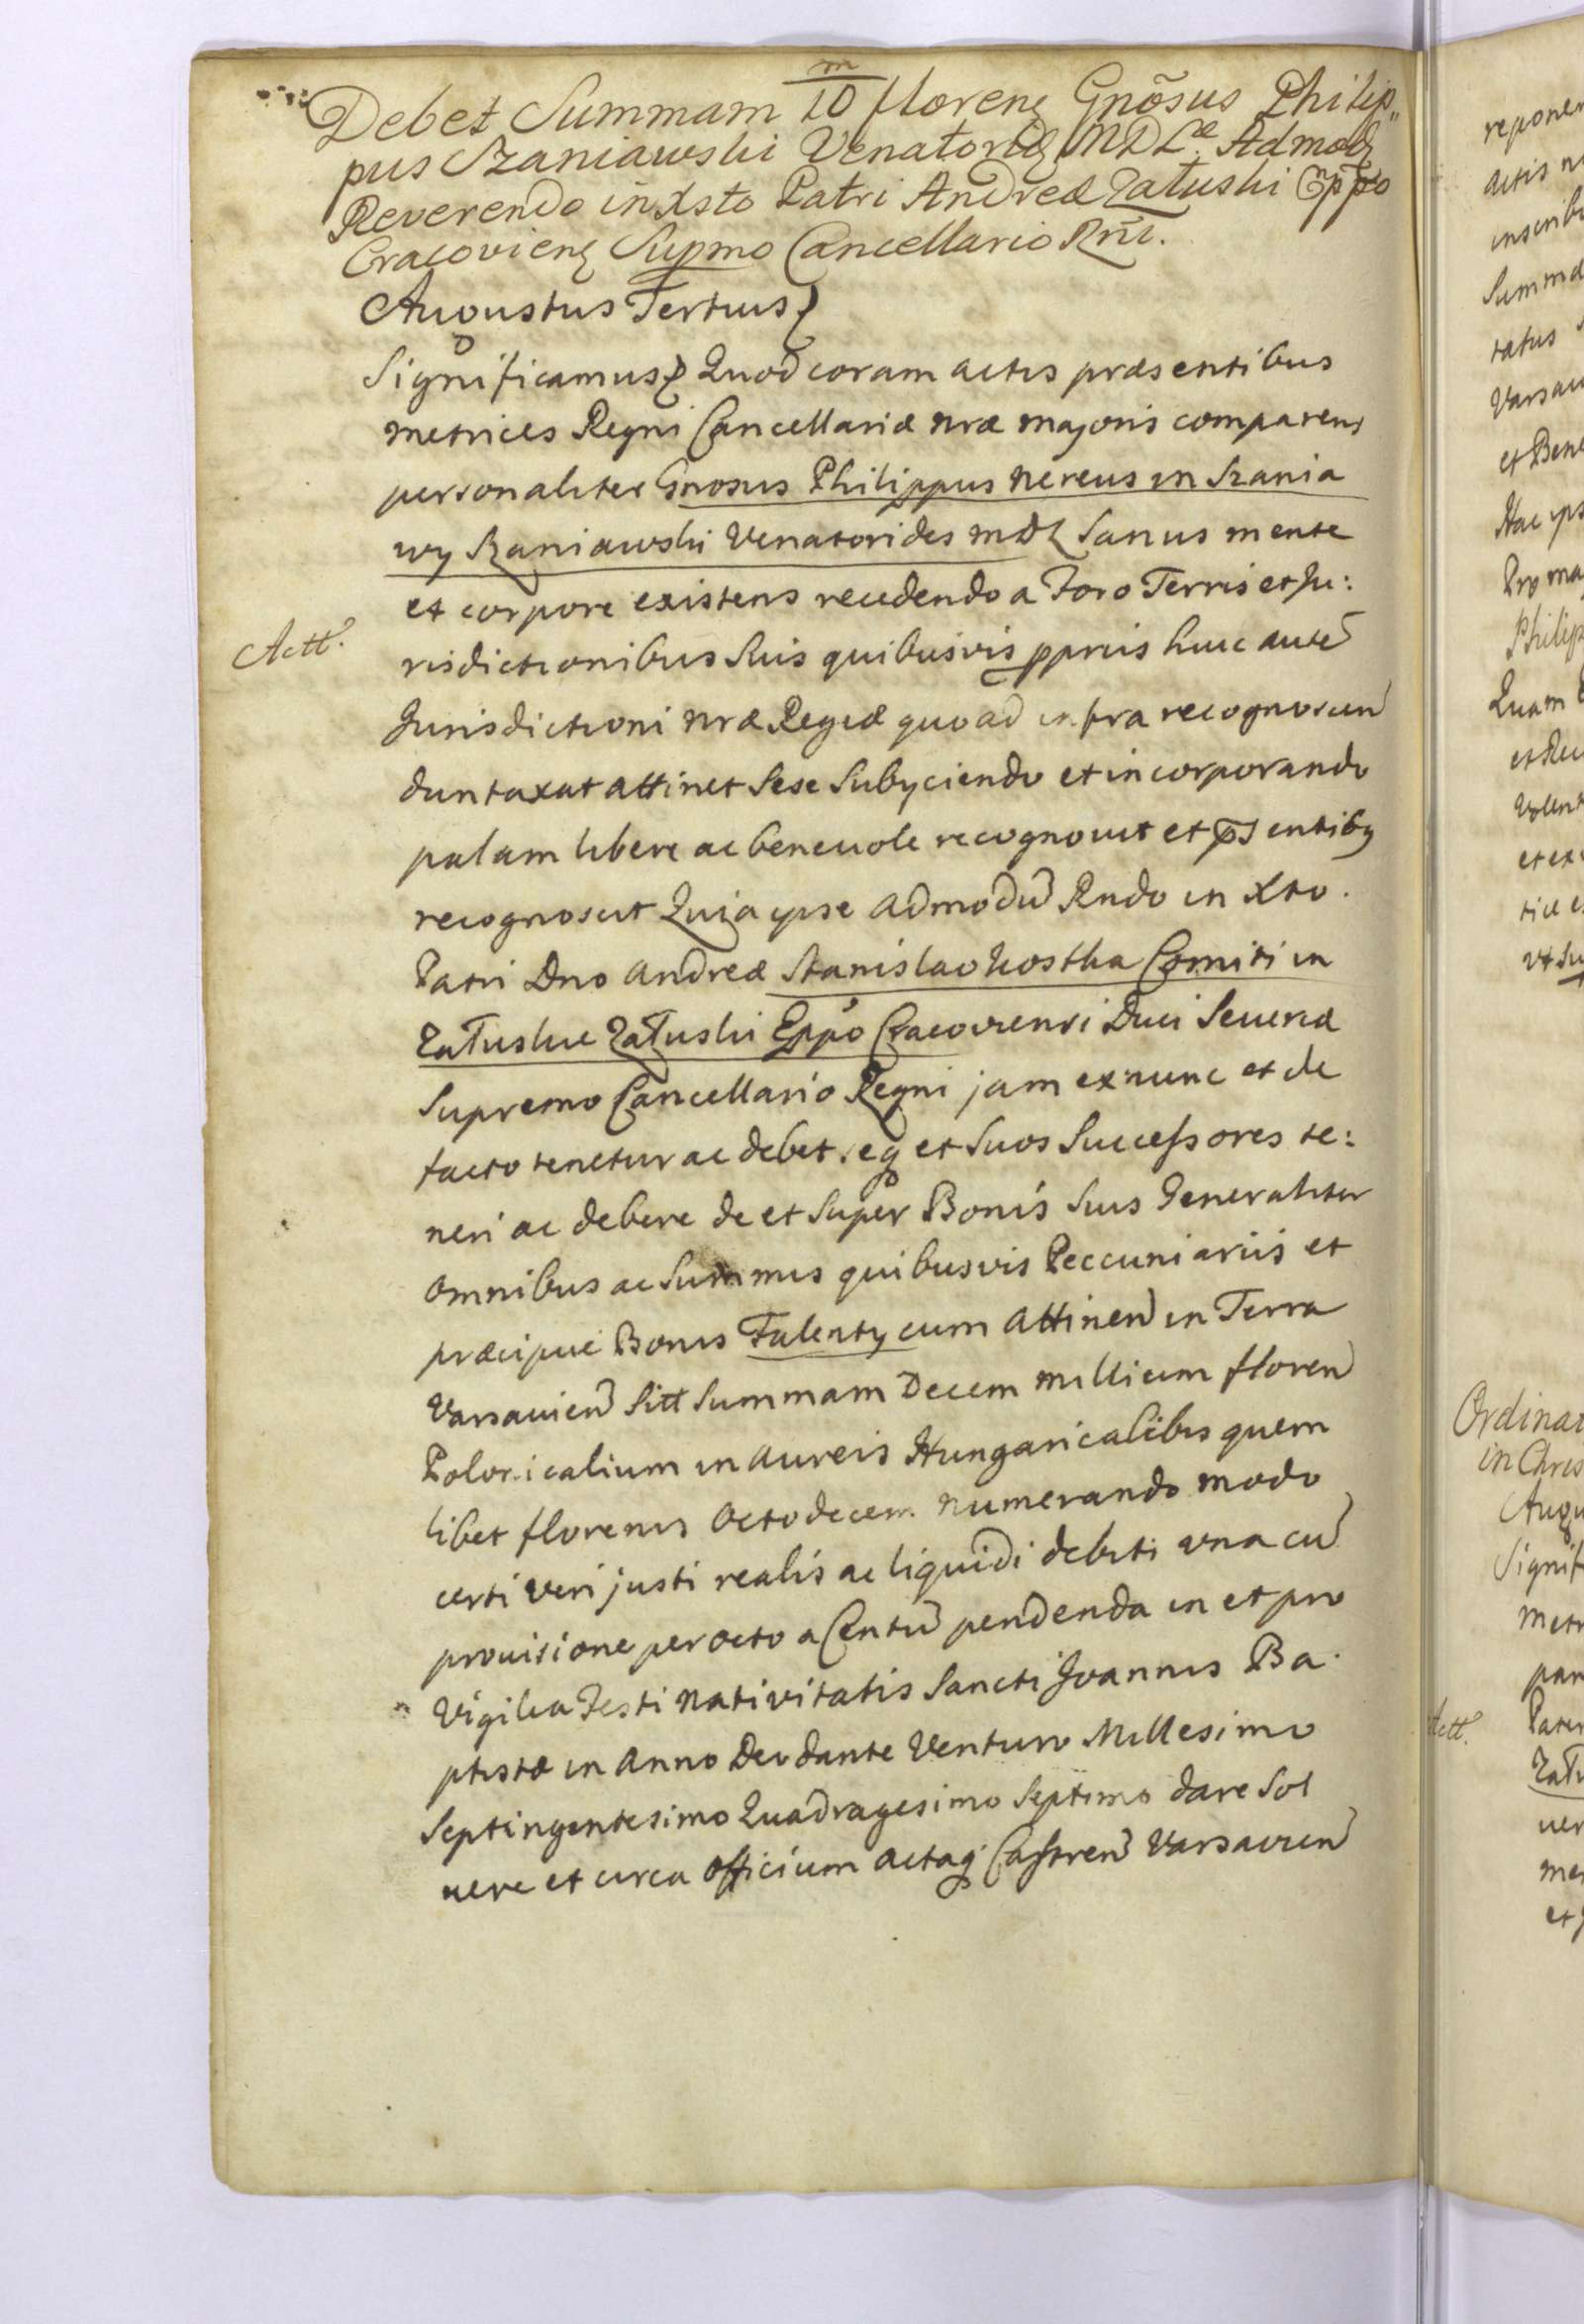 Debet Summam m/10 floreng Gnõsus Philip„
pus Szaniawski Venatorid MDLæ Admod
Reverendo in Xsto Patri Andreæ Załuski Eppo
Cracovieng Supmo Cancellario Rni.
Augustus Tertius
Significamus Quod coram actis præsentibus
metrices Regni Cancellariæ nræ majoris comparens
personaliter Gnosus Philippus Nereus in Szania
wy Szaniawski Venatorides MDL Sanus mente
et corpore existens recedendo a Foro Terris et Ju:
Actt.
risdictionibus Suis quibusvis ppriis huic aute
Jurisdictioni nræ Regiæ quoad infra recognoscen
duntaxat attinet Sese Subyciendo et incorporando
palam libere ac beneuole recognouit et psentibq
recognoscit Quia ipse Admodu Rndo in Xto.
Patri Dno Andreæ Stanislao Kostka Comiti in
Załuskie Załuski Eppo Cracoviensi Duci Severiæ
Supremo Cancellario Regni jam exnunc et de
facto tenetur ac debet. seq et Suos Successores te:
neri ac debere de et Super Bonis Suis Generaliter
Omnibus ac Summis quibusvis Peccuniariis et
præcipue Bonis Falenty cum Attinen in Terra
Varsavien Sitt Summam Decem millium floren
Polonicalium in Aureis Hungaricalibus quem
libet florenis Octodecem numerando modo
certi veri justi realis ac liquidi debiti una cu
prouisione per octo a Centu pendenda in et pro
Vigilia Festi Nativitatis Sancti Joannis Ba.
ptistæ in Anno Deo dante Venturo Millesimo
Septingentesimo Quadragesimo Septimo dare Sol
uere et circa Officium Actaq Castren Varsavien
reponen
actis
inscrib
Summa
ratus
Varsav
et Bene
Hac ips
Pro ma
Philip
Quam
volen
et ex
Ordinat
in Chris
Augu
Signif
Metr
par
Actt.
Pater
Zału
uer